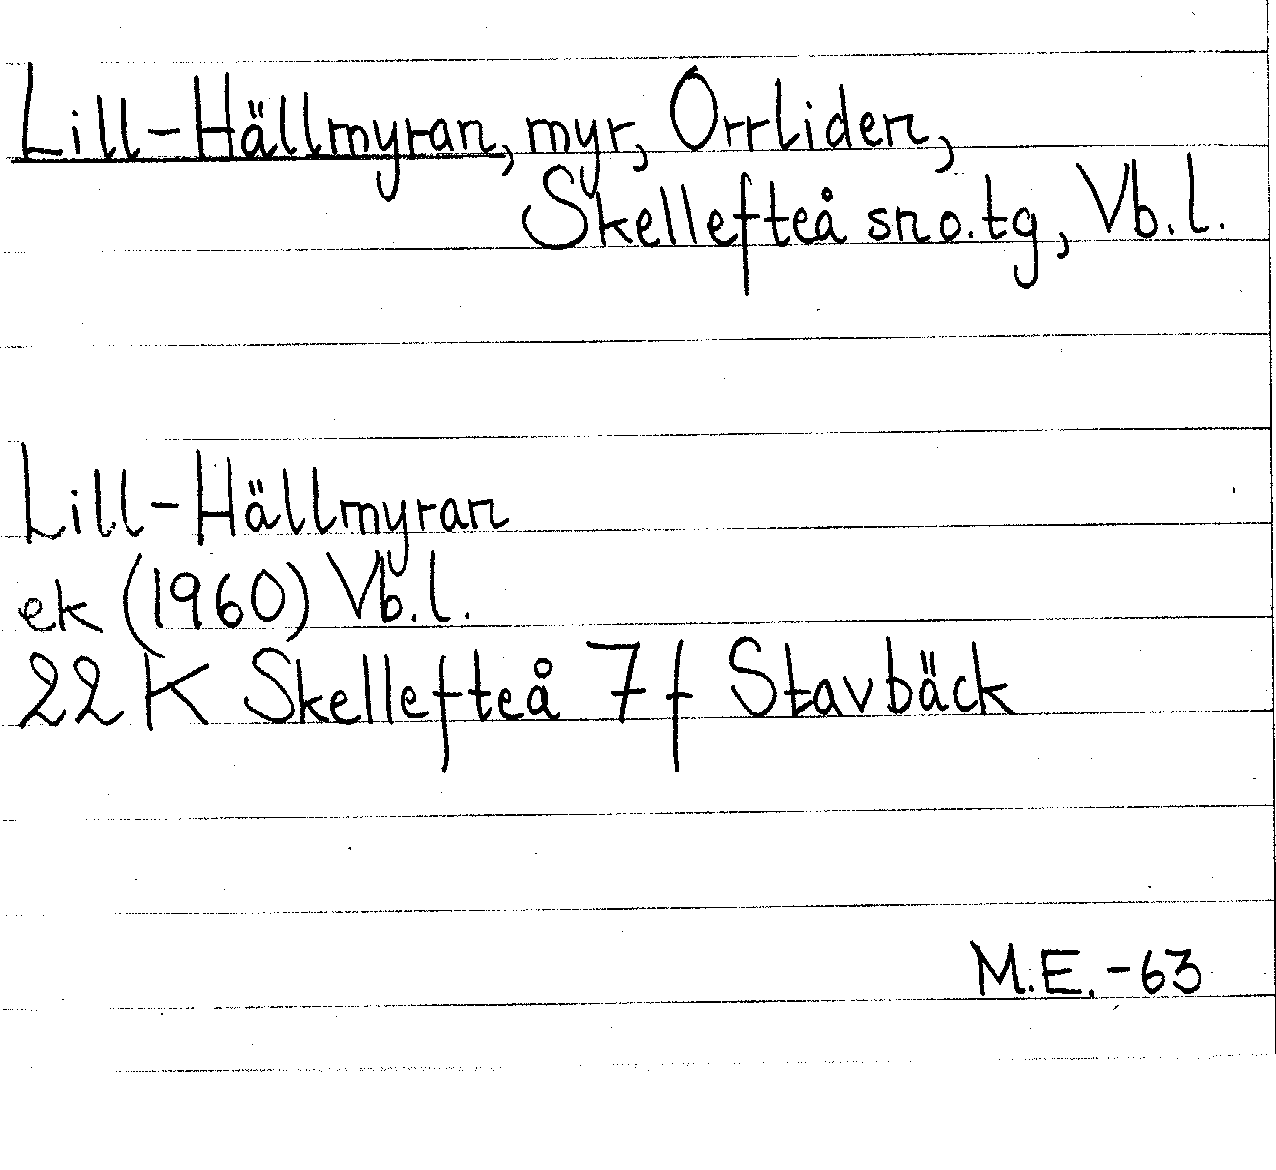 Lill-Hällmyran, myr, Orrliden,
Skellefteå sno.tg, Vb.l.
Lill-Hällmyran
ek (1960) Vb.l.
22 K Skellefteå 7f Stavbäck
M.E. -63